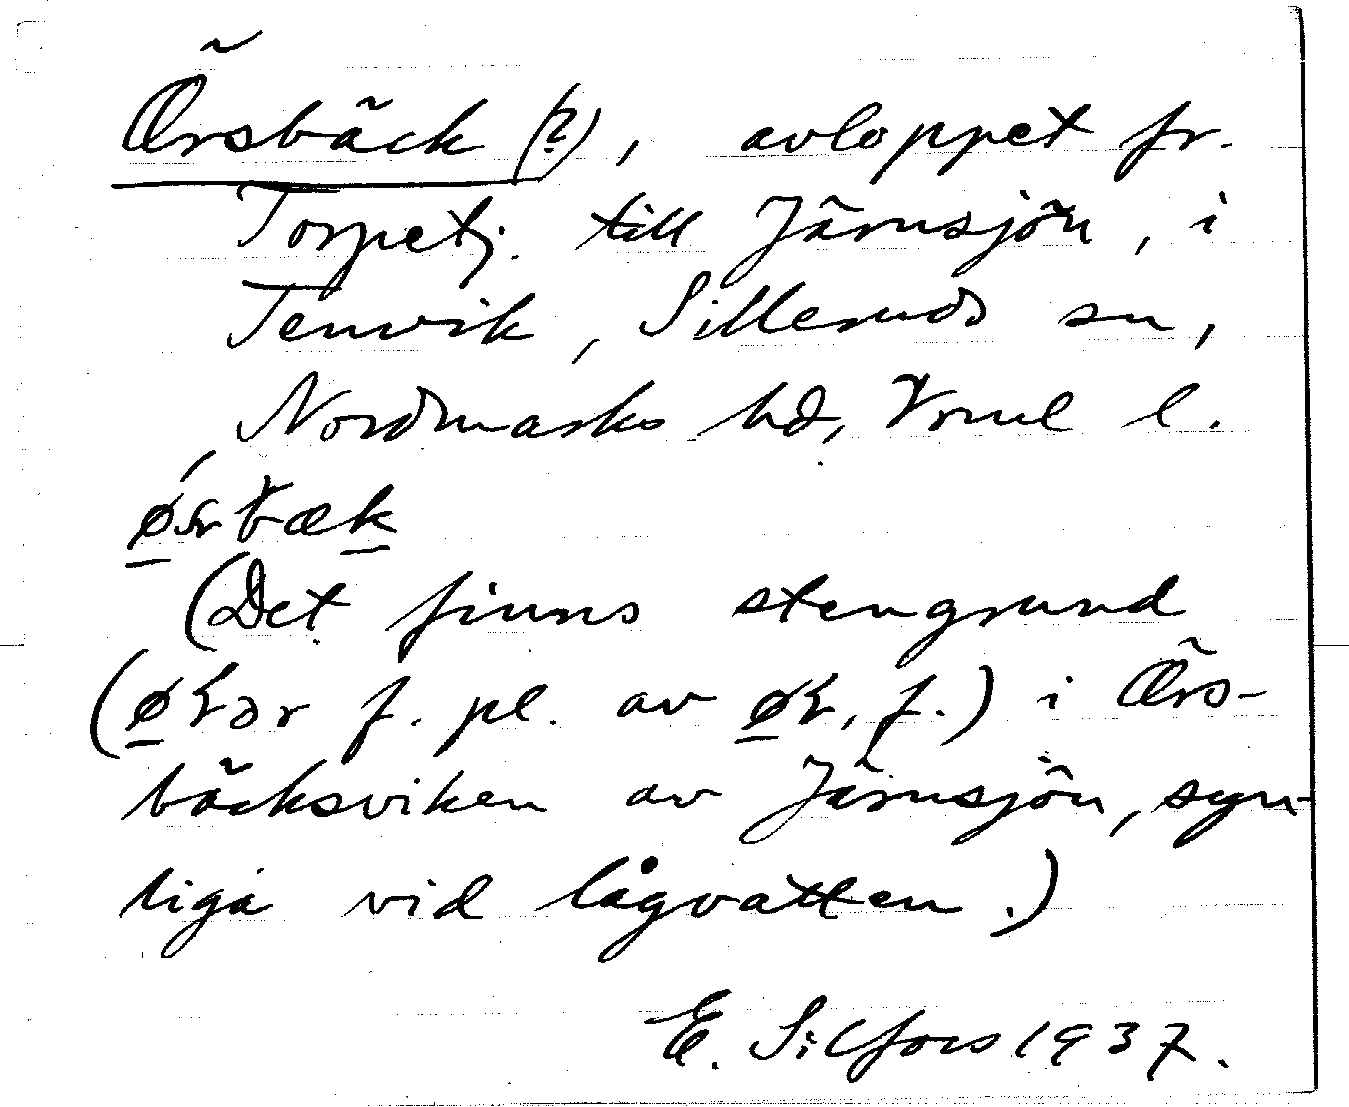 Örsbäck (?), avloppet fr.
Torpetj. till Järnsjön, i
Tenvik, Sillerud sn,
Nordmarks hd, Vrml l.
(Det finns stengrund
f. pl. av f.) i Örs-
bäcksviken av Järnsjön, syn-
liga vid lågvatten.)
E. Silfors 1937.